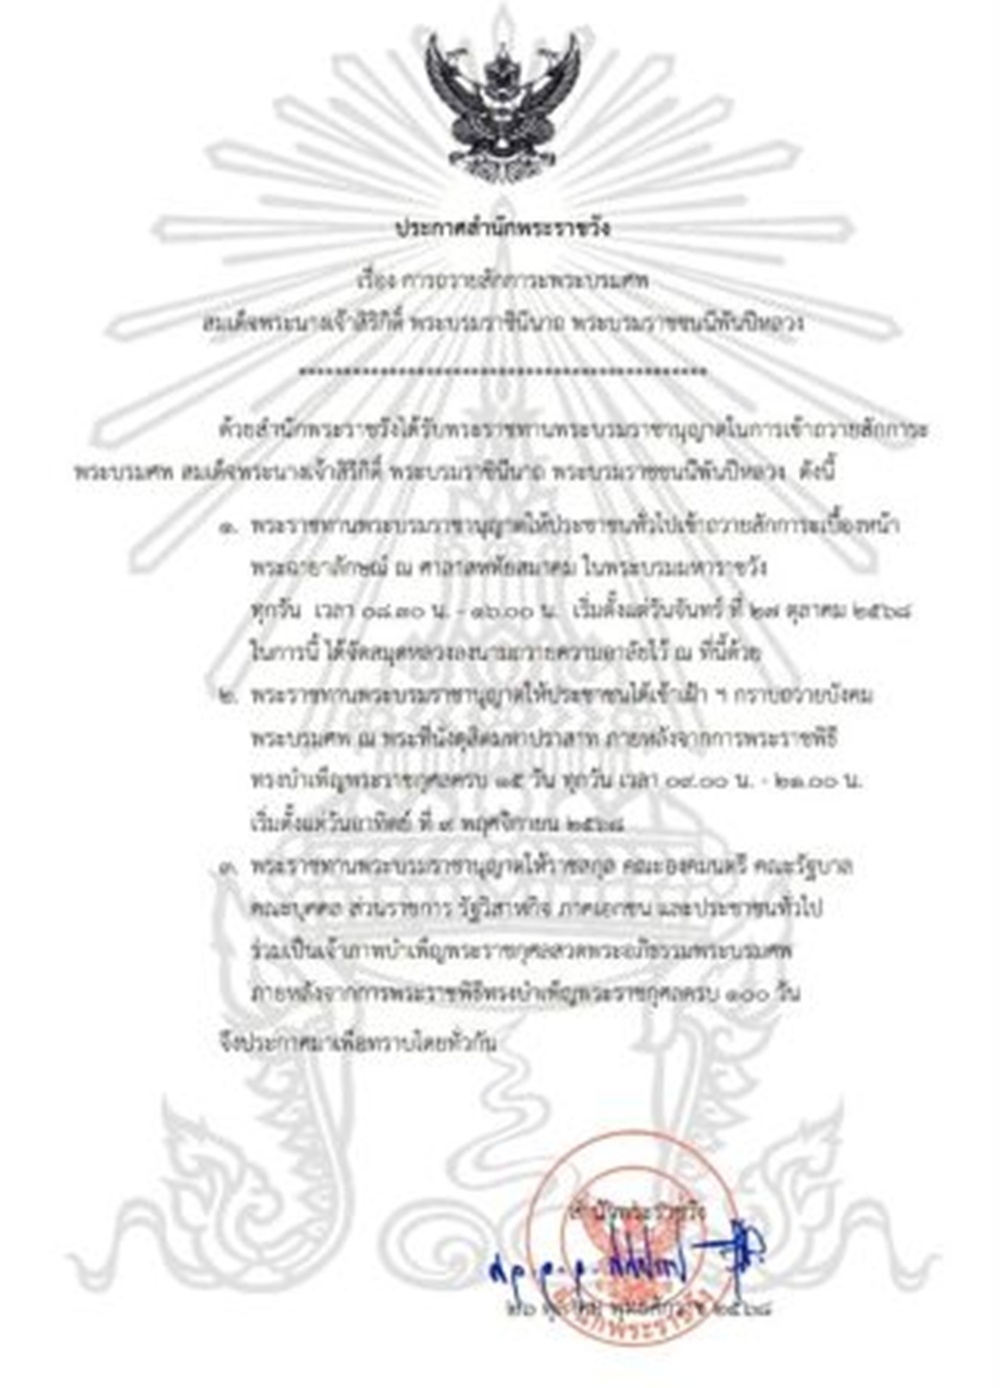 ประกาศสำนักพระราชวัง
เรื่อง การถวายสักการะพระบรมศพ
สมเด็จพระนางเจ้าสิริกิติ์ พระบรมราชินีนาถ พระบรมราชชนนีพันปีหลวง
ด้วยสำนักพระราชวังได้รับพระราชทานพระบรมราชานุญาตในการเข้าถวายสักการะ
พระบรมศพ สมเด็จพระนางเจ้าสิริกิติ์ พระบรมราชินีนาถ พระบรมราชชนนีพันปีหลวง ดังนี้
๑. พระราชทานพระบรมราชานุญาตให้ประชาชนทั่วไปเข้าถวายสักการะเบื้องหน้า
พระฉายาลักษณ์ ณ ศาลาสหทัยสมาคม ในพระบรมมหาราชวัง
ทุกวัน เวลา ๐๘.๓๐ น. - ๑๖.๐๐ น. เริ่มตั้งแต่วันจันทร์ ที่ ๒๗ ตุลาคม ๒๕๖๘
ในการนี้ ได้จัดสมุดหลวงลงนามถวายความอาลัยไว้ ณ ที่นี้ด้วย
๒. พระราชทานพระบรมราชานุญาตให้ประชาชนได้เข้าเฝ้า ฯ กราบถวายบังคม
พระบรมศพ ณ พระที่นั่งดุสิตมหาปราสาท ภายหลังจากการพระราชพิธี
ทรงบำเพ็ญพระราชกุศลครบ ๑๕ วัน ทุกวัน เวลา ๐๙.๐๐ น. - ๒๑.๐๐ น.
เริ่มตั้งแต่วันอาทิตย์ ที่ ๙ พฤศจิกายน ๒๕๖๘
๓. พระราชทานพระบรมราชานุญาตให้ราชสกุล คณะองคมนตรี คณะรัฐบาล
คณะบุคคล ส่วนราชการ รัฐวิสาหกิจ ภาคเอกชน และประชาชนทั่วไป
ร่วมเป็นเจ้าภาพบำเพ็ญพระราชกุศลสวดพระอภิธรรมพระบรมศพ
ภายหลังจากการพระราชพิธีทรงบำเพ็ญพระราชกุศลครบ ๑๐๐ วัน
จึงประกาศมาเพื่อทราบโดยทั่วกัน
สำนักพระราชวัง
๒๖ ตุลาคม พุทธศักราช ๒๕๖๘
สำนักพระราชวัง